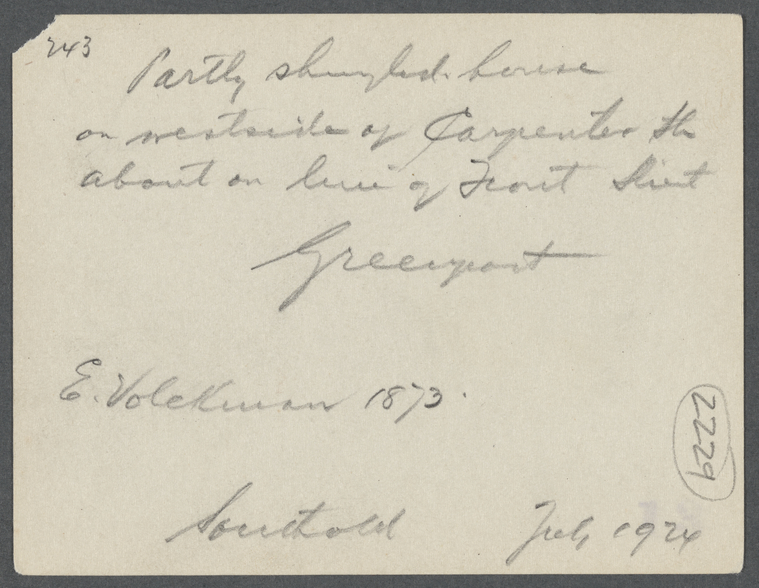 243
Partly shingled house
on westside of Carpenter St
about on line of Front Street
Greenport
E. Volckman 1873.
2229
Southold July 1924